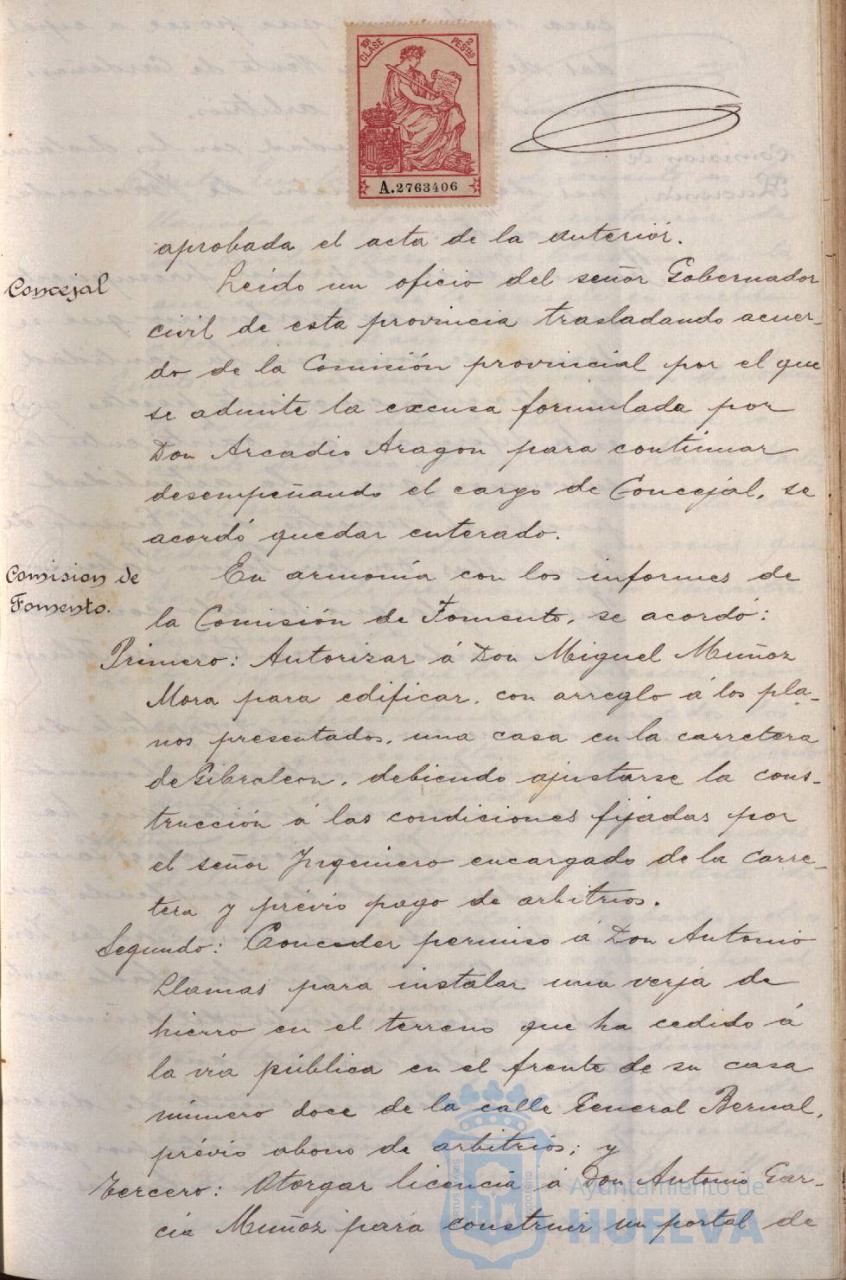 10ª CLASE 2 PESTAS
A.2763406
aprobada el acta de la anterior.
Concejal
Leido un oficio del señor Gobernador
civil de esta provincia trasladando acuer-
do de la Comisión provincial por el que
se admite la excusa formulada por
Don Arcadio Aragon para continuar
desempeñando el cargo de Concejal, se
acordó quedar enterado.
Comision de
Fomento.
En armonía con los informes de
la Comisión de Fomento, se acordó:
Primero: Autorizar á Don Miguel Muñoz
Mora para edificar, con arreglo á los pla-
nos presentados, una casa en la carretera
de Gibraleon, debiendo ajustarse la cons-
trucción á las condiciones fijadas por
el señor Ingeniero encargado de la carre-
tera y prévio pago de arbitrios.
Segundo: Conceder permiso á Don Antonio
Llamas para instalar una verja de
hierro en el terreno que ha cedido á
la via pública en el frente de su casa
número doce de la calle General Bernal,
prévio abono de arbitrios; y
Tercero: Otorgar licencia á Don Antonio Gar-
cia Muñoz para construir un portal de
Ayuntamiento de
HUELVA